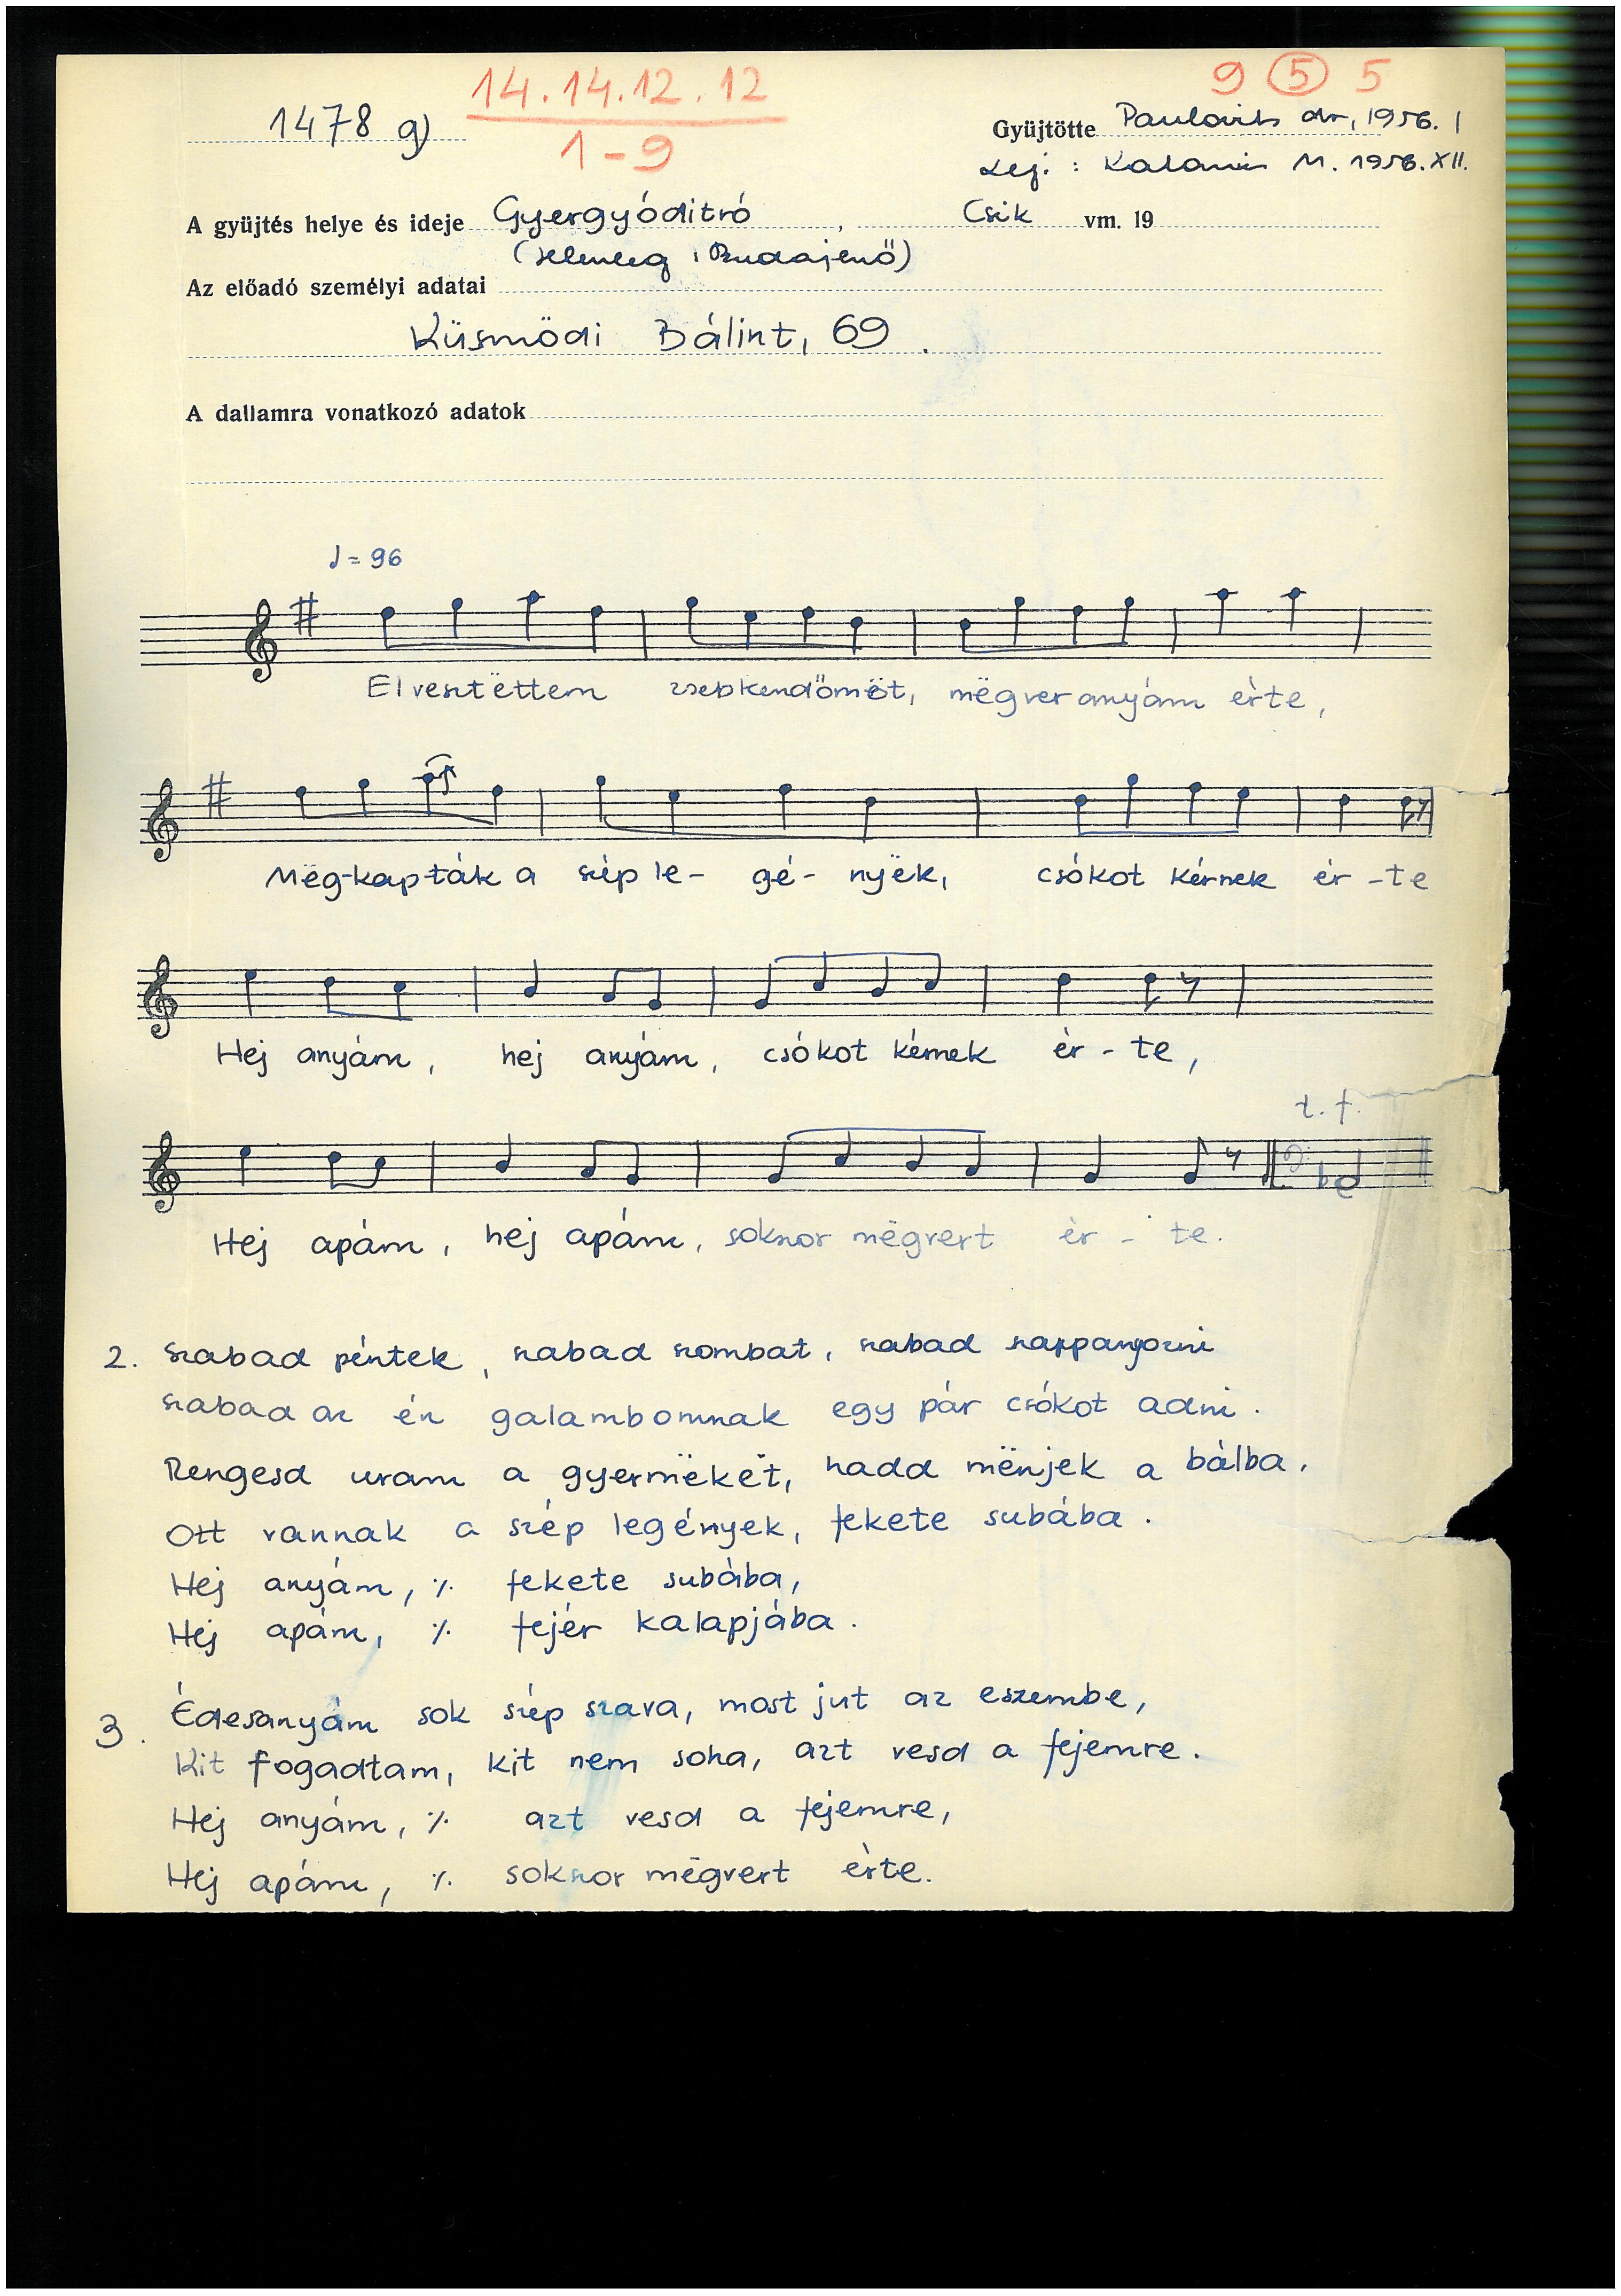 14.14.12.12
1-9
9 5 5
1478 g)
Gyüjtötte Paulovits dr, 1956. I
Lej. : Kalanis M. 1956. XII.
A gyüjtés helye és ideje Gyergyóditró, Csik vm. 19
(Jelenleg : Budajenő)
Az előadó személyi adatai
Küsmödi Bálint, 69.
A dallamra vonatkozó adatok
♩ = 96
Elvesztëttem zsebkendőmët, mëgver anyám érte,
Mëg-kapták a szép le- gé- nyëk, csókot kérnek ér-te
Hej anyám, hej anyám, csókot kérnek ér-te,
t. f.
Hej apám, hej apám, sokszor mëgvert ér-te.
2. Szabad péntek, szabad szombat, szabad szappanyozni
szabad az én galambomnak egy pár csókot adni.
Rengesd uram a gyermëkët, hadd mënjek a bálba,
Ott vannak a szép legények, fekete subába.
Hej anyám, ٪ fekete subába,
Hej apám, ٪ fejér kalapjába.
3. Édesanyám sok szép szava, most jut az eszembe,
Kit fogadtam, kit nem soha, azt vesd a fejemre.
Hej anyám, ٪ azt vesd a fejemre,
Hej apám, ٪ sokszor mëgvert érte.